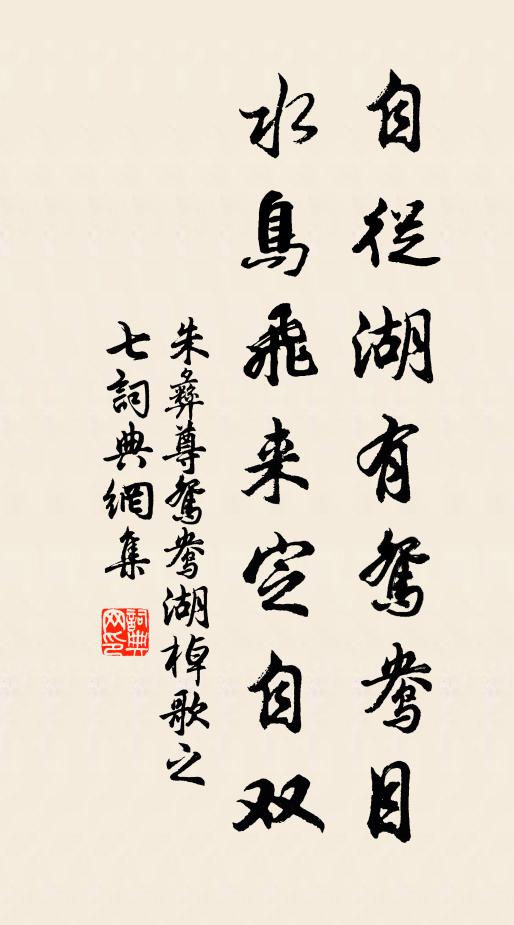 自從湖有鴛鴦目
水鳥飛来定自双
朱彝尊鴛鴦湖棹歌之
七詞典網集
詞典
网印